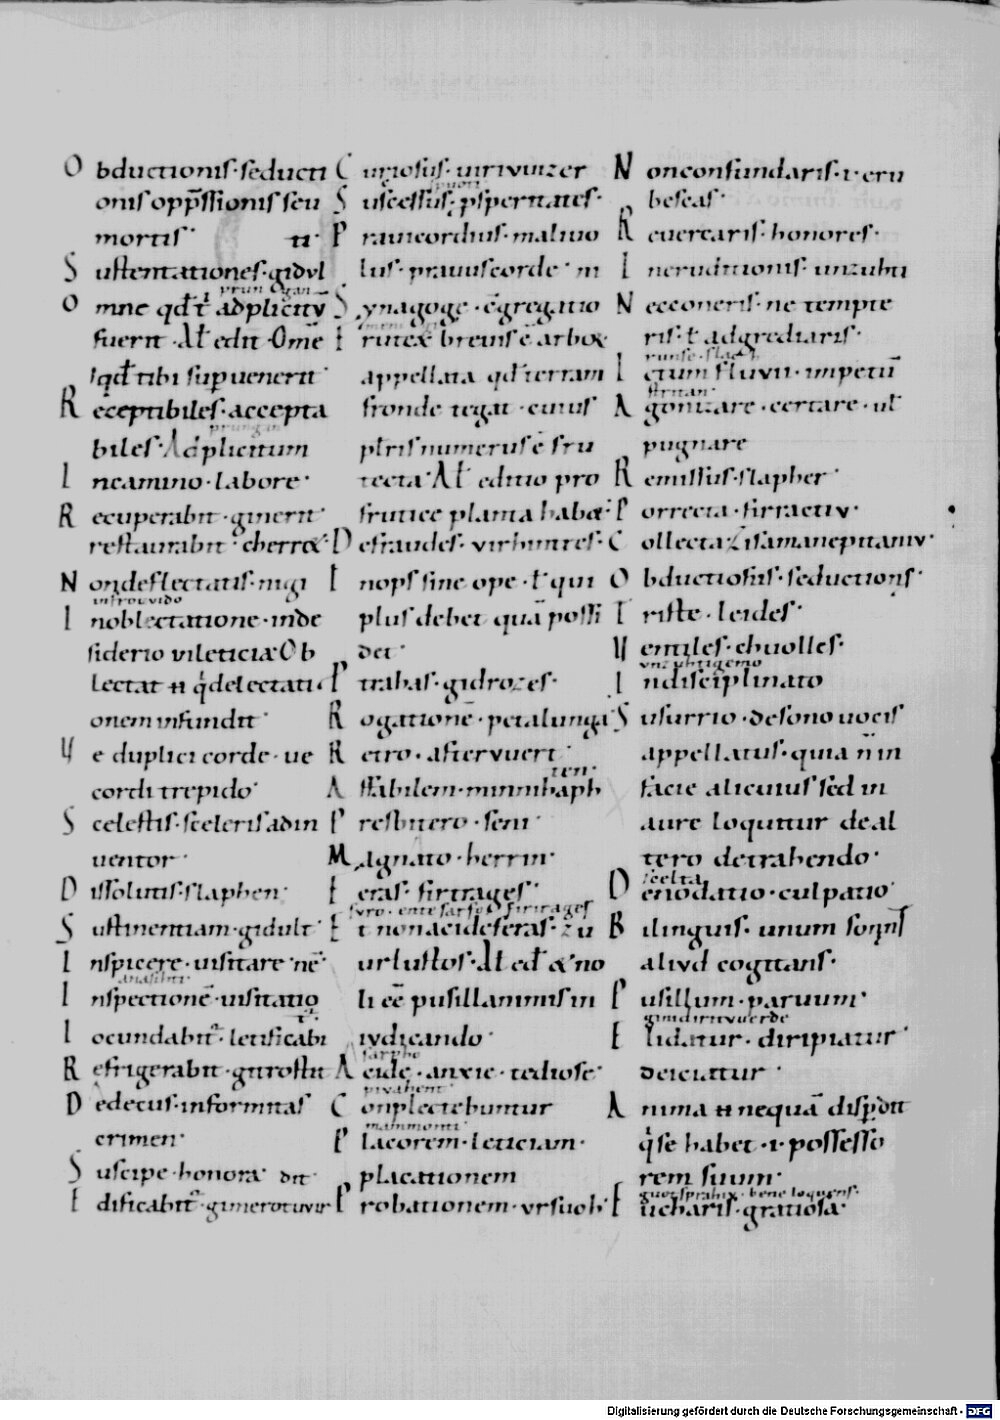 Obductionis · seducti
onis opp̄ssionis seu
mortis ·
Sustentationes · gidvl
ti ·
prun gan
Omne qd̄ ł adplicitū
fuerit · Al̄ edit · Om̄e
qd̄ tibi supuenerit ·
Receptibiles · accepta
prungan
biles · Adplicitum
Incamino · labore ·
Recuperabit · ginerit ·
restaurabit · cherret ·
Nondeflectatis · nigi
infrouuido
Inoblectatione · inde
siderio vileticiæ Ob
lectat · delectati
onem infundit ·
Ve duplici corde · ue
cordi trepido ·
Scelestis · sceleris adin
uentor ·
Dissolutis · slaphen ·
Sustinentiam · gidult ·
Inspicere · uisitare · nē ·
anasihti
Inspectionē · uisitatio
Iocundabit · letificabi
Refrigerabit · gitrostit
Dedecus · informitas
crimen ·
Suscipe · honora ·
Edificabit · gimerotuvir
dit ·
Curiosus · uirivuizer
spuoti
Suscessus · psperitates ·
Prauicordius · maliuo
lus · prauuscorde · ni
Synagoge · cgregatio
Frutex breuis ē arbor
appellata qd̄ terram
fronde tegat · cuius
pl̄ris numerus ē fru
tecta · Al̄ editio pro
frutice planta habet ·
Defraudes · virhintres ·
Inops sine ope · ł qui
plus debet quā possi
det ·
Trabas · gidrozes ·
Rogationē · petalunga ·
Retro · aftervuert ·
ten ·
Affabilem · minnihaph
Presbitero · seni ·
Magnato · herrin ·
Feras · firtrages ·
svro · ente sarfo firtrages
Et nonacideferas · zu
urlustos · Al̄ ed̄ et no
li eē pusillanimis in
ivdicando ·
sarpho
Acide · anxie · tediose ·
pivahent
Conplectebuntur
mammonti
Placorem · leticiam ·
placationem
Probationem · ursuoh ·
Nonconfundaris · i · eru
bescas ·
Reuertaris · honores ·
Ineruditionis · unzuhti
Necconeris · ne tempte
ris · ł adgrediaris ·
runse · flaoth
Ictum fluvii · impetū
stritan
Agonizare · certare · ul̄
pugnare
Remissus · slapher ·
Porrecta · firractiv ·
Collecta zisamanepitaniv ·
Obductiosus · seductionis ·
Triste · leides ·
Humiles · ebuolles ·
vnzuhtigemo
Indisciplinato
Susurrio · desono uocis
appellatus · quia n̄ in
facie alicuius sed in
aure loquitur de al
tero detrahendo ·
scelta
Denodatio · culpatio ·
Bilinguis · unum
aliud cogitans ·
Pusillum · paruum ·
gimidirituuerde
Elidatur · diripiatur ·
deiciatur ·
Anima nequā disp̄dit
se habet · i · possesso
rem suum ·
guotsprahix · bene loquens ·
Eucharis · gratiosa ·
Digitalisierung gefördert durch die Deutsche Forschungsgemeinschaft - DFG